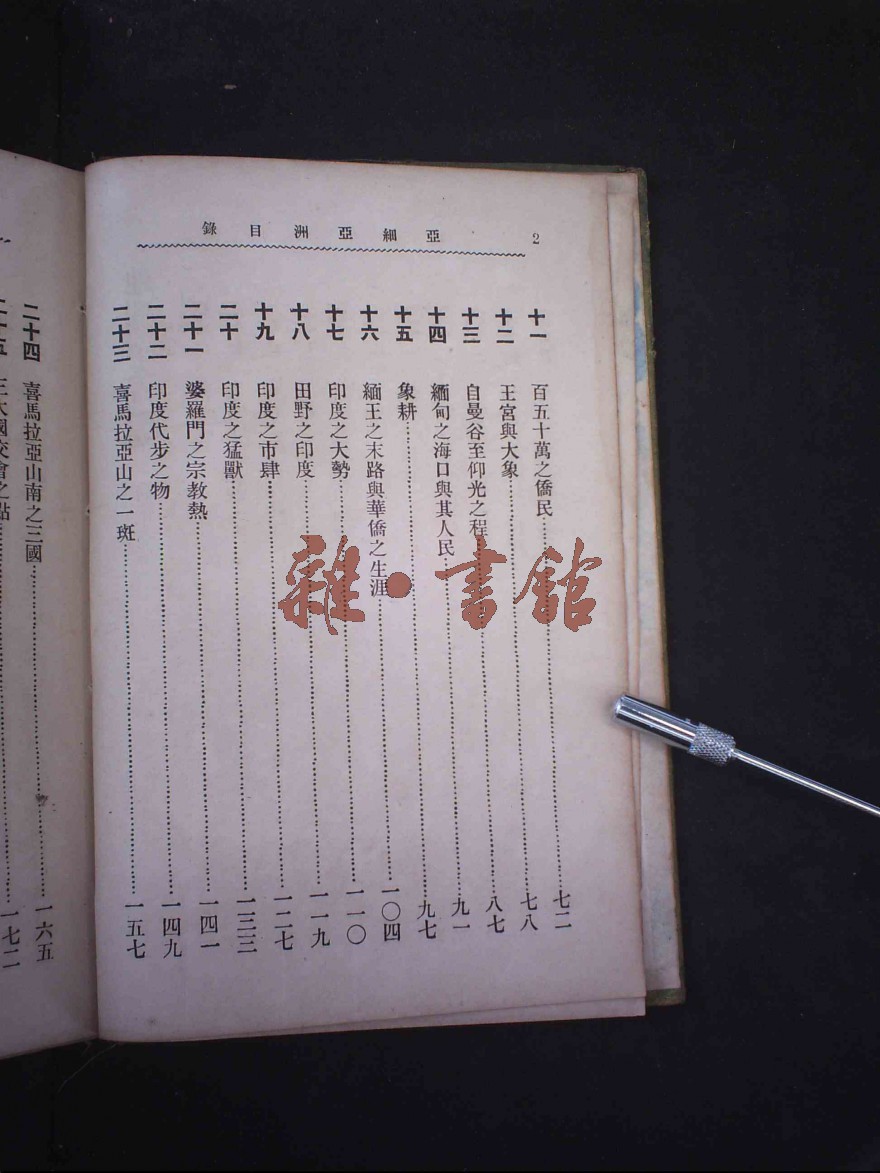 亞細亞洲目錄 2
十一 百五十萬之僑民 七二
十二 王宮與大象 七八
十三 自曼谷至仰光之程 八七
十四 緬甸之海口與其人民 九一
十五 象耕 九七
十六 緬王之末路與華僑之生涯 一〇四
十七 印度之大勢 一一〇
十八 田野之印度 一一九
十九 印度之市肆 一二七
二十 印度之猛獸 一三三
二十一 婆羅門之宗教熱 一四一
二十二 印度代步之物 一四九
二十三 喜馬拉亞山之一斑 一五七
二十四 喜馬拉亞山南之三國 一六五
二十五 三大國交會之點 一七二
雜·書館